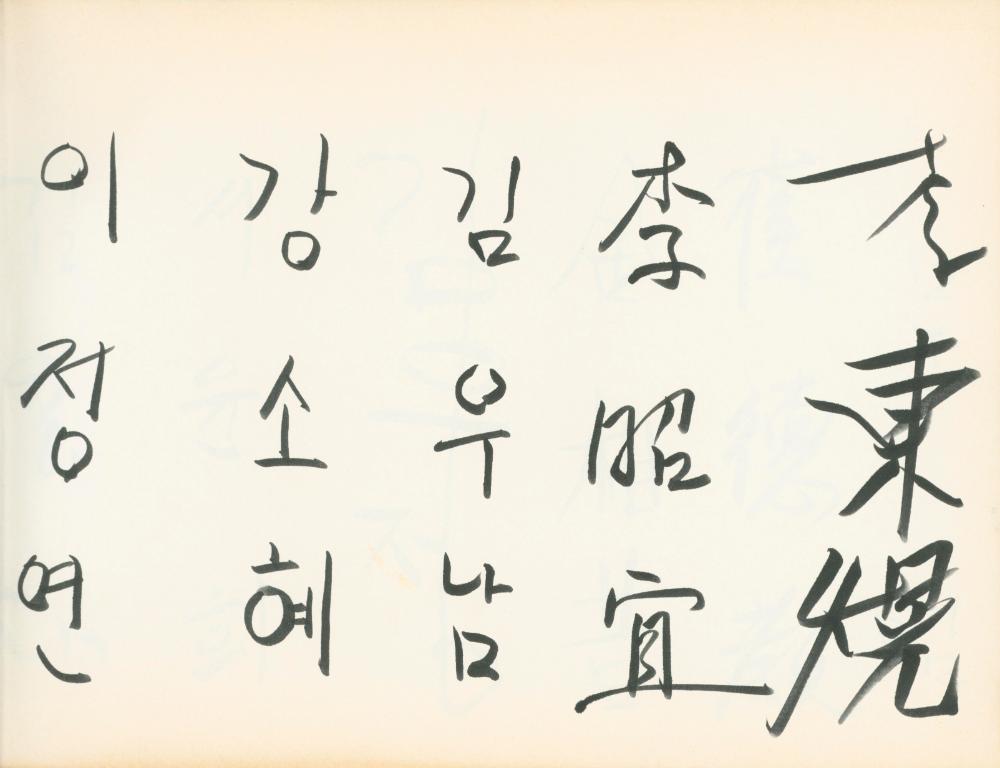 李東熀
李昭宜
김우남
강소혜
이정연